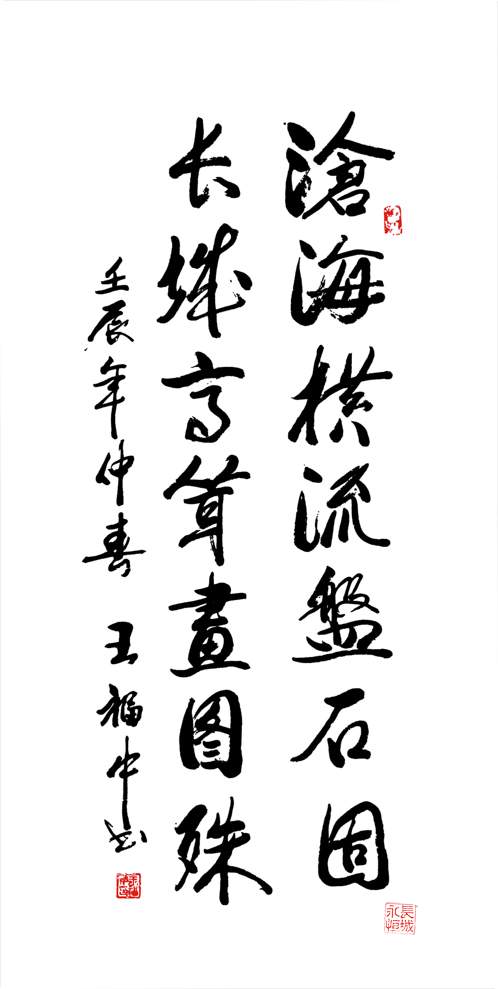 滄海横流盤石固
长城高耸畫图殊
壬辰年仲春 王福中书
長城永恒